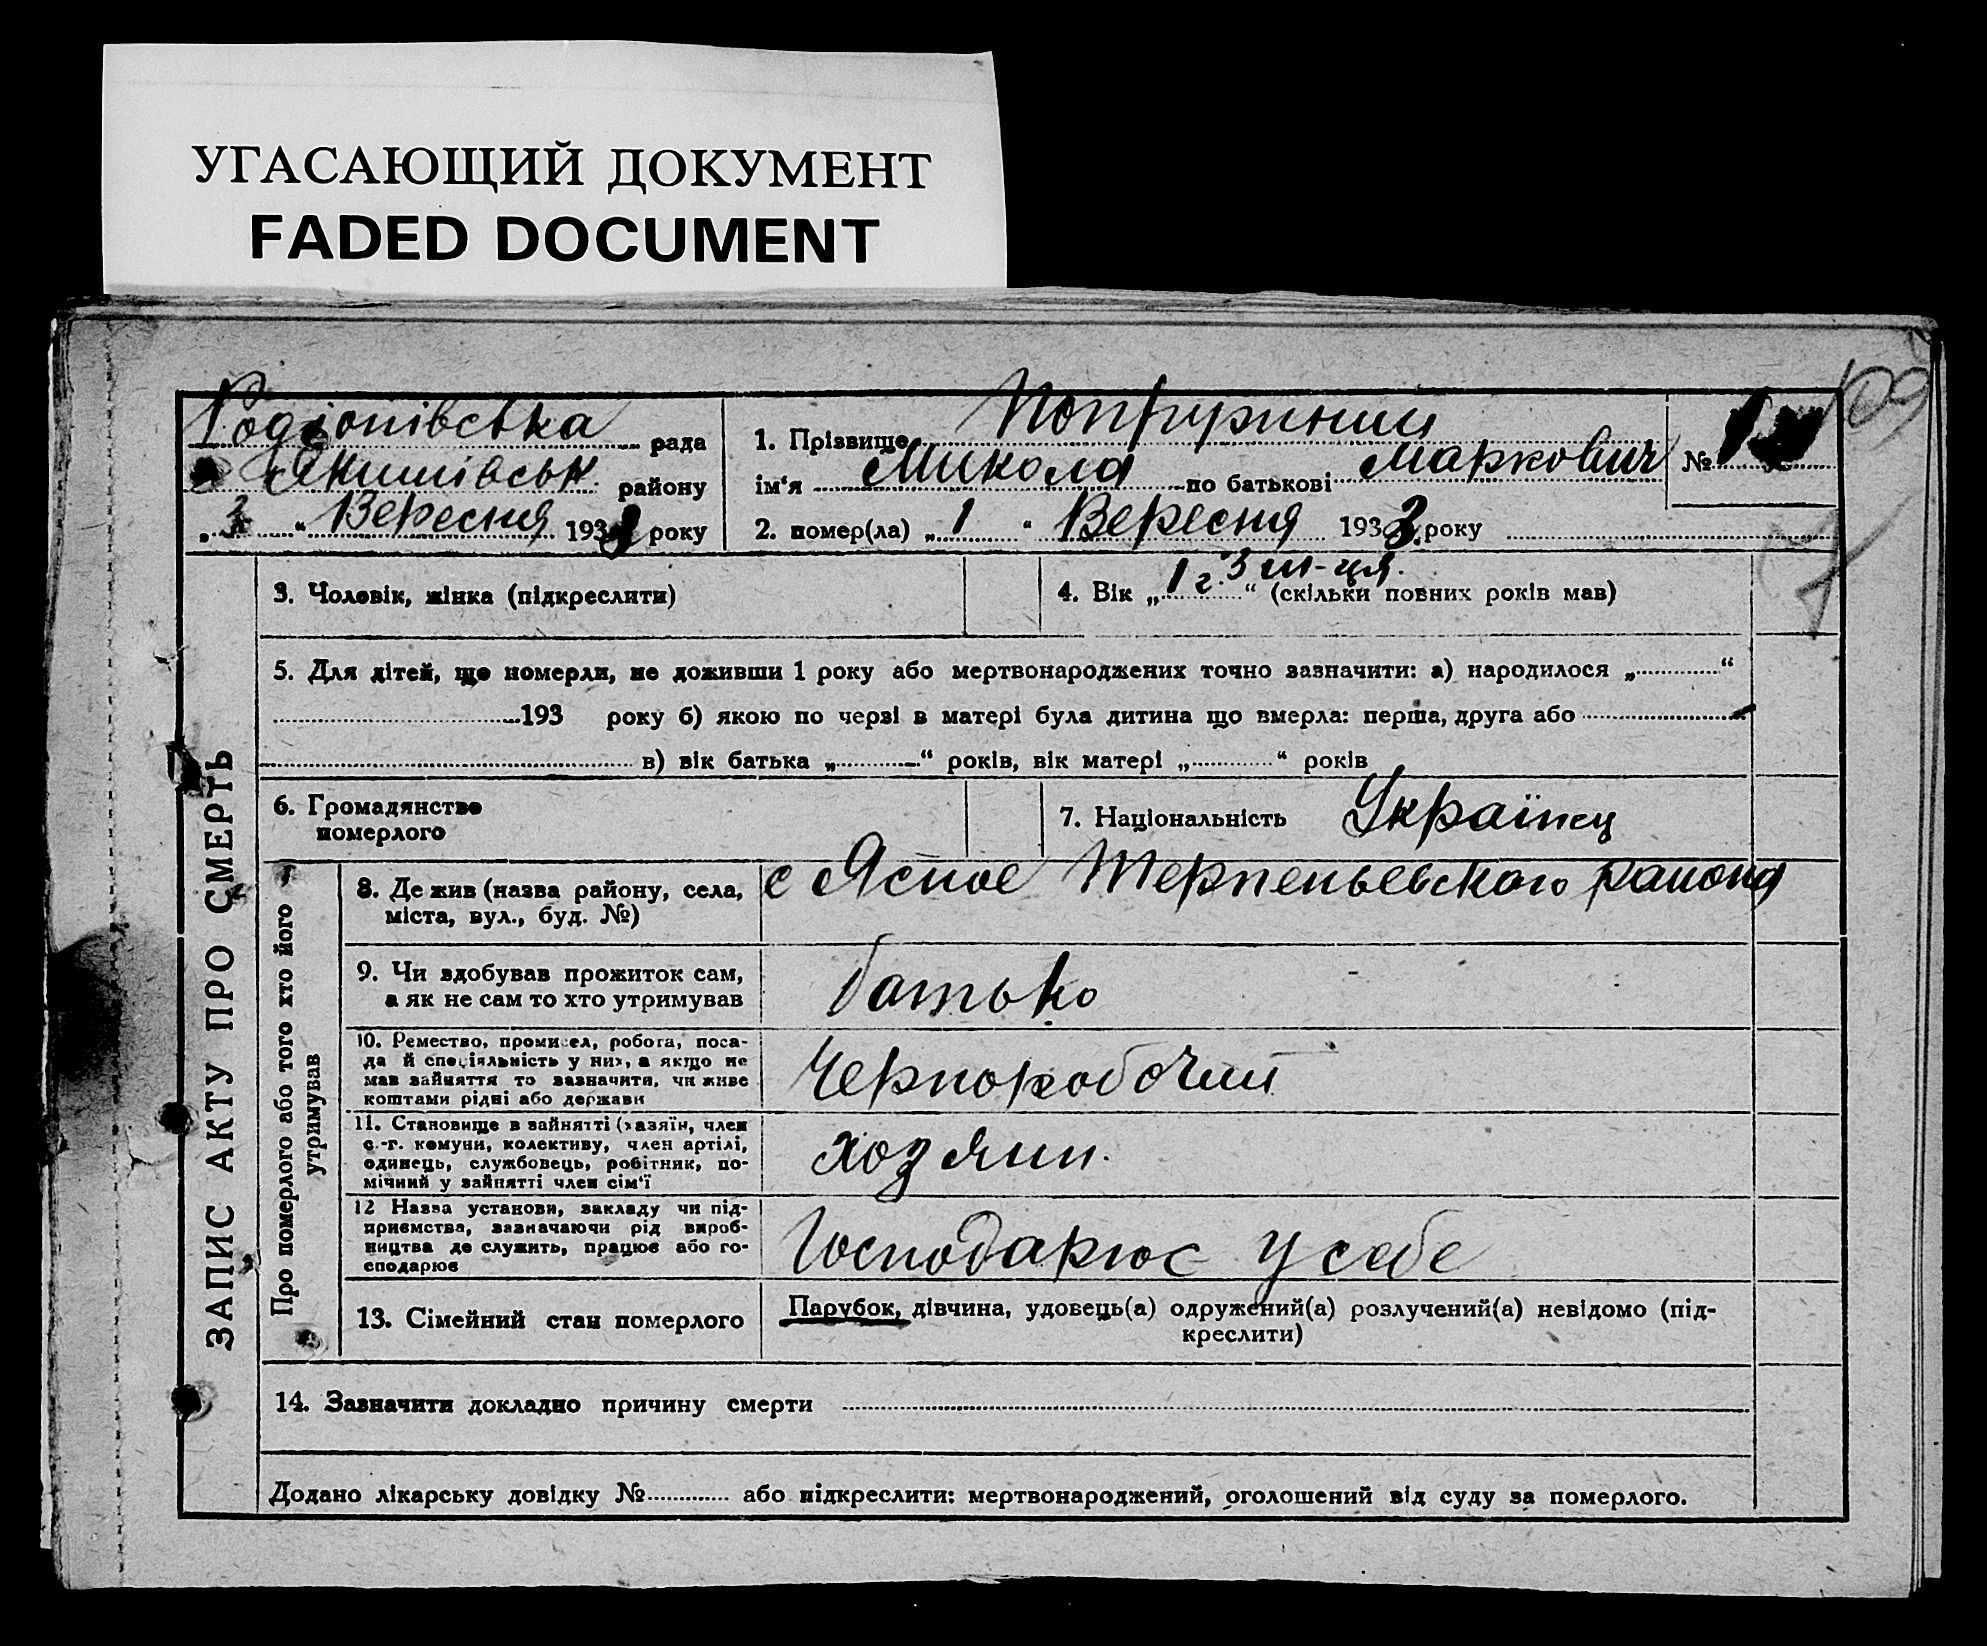 УГАСАЮЩИЙ ДОКУМЕНТ
FADED DOCUMENT
109
Родіонівська рада
Якимівськ. району
„ 3 “ Вересня 1933 року
1. Прізвище Попружний
ім'я Микола по батькові Маркович № 1
2. помер(ла) „ 1 “ Вересня 1933 року
ЗАПИС АКТУ ПРО СМЕРТЬ
3. Чоловік, жінка (підкреслити)
4. Вік „ 1 г. 3 м-ця. “ (скільки повних років мав)
5. Для дітей, що померли, не доживши 1 року або мертвонароджених точно зазначити: а) народилося „ “
193 року б) якою по черзі в матері була дитина що вмерла: перша, друга або
в) вік батька „ “ років, вік матері „ “ років
6. Громадянство
померлого
7. Національність Українец
Про померлого або того хто його
утримував
8. Де жив (назва району, села,
міста, вул., буд. №)
с Ясное Терпеньевского района
9. Чи вдобував прожиток сам,
а як не сам то хто утримував
батько
10. Ремество, промисел, робота, поса-
да й спеціяльність у них, а якщо не
мав зайняття то зазначити, чи живе
коштами рідні або держави
Чернорабочий
11. Становище в зайнятті (хазяїн, член
с.-г. комуни, колективу, член артілі,
одинець, службовець, робітник, по-
мічний у зайнятті член сім'ї
хозяин.
12 Назва установи, закладу чи під-
приємства, зазначаючи рід вироб-
ництва де служить, працює або го-
сподарює
Господарює у себе
13. Сімейний стан померлого
Парубок, дівчина, удовець(а) одружений(а) розлучений(а) невідомо (під-
креслити)
14. Зазначити докладно причину смерти
Додано лікарську довідку № або підкреслити: мертвонароджений, оголошений від суду за померлого.